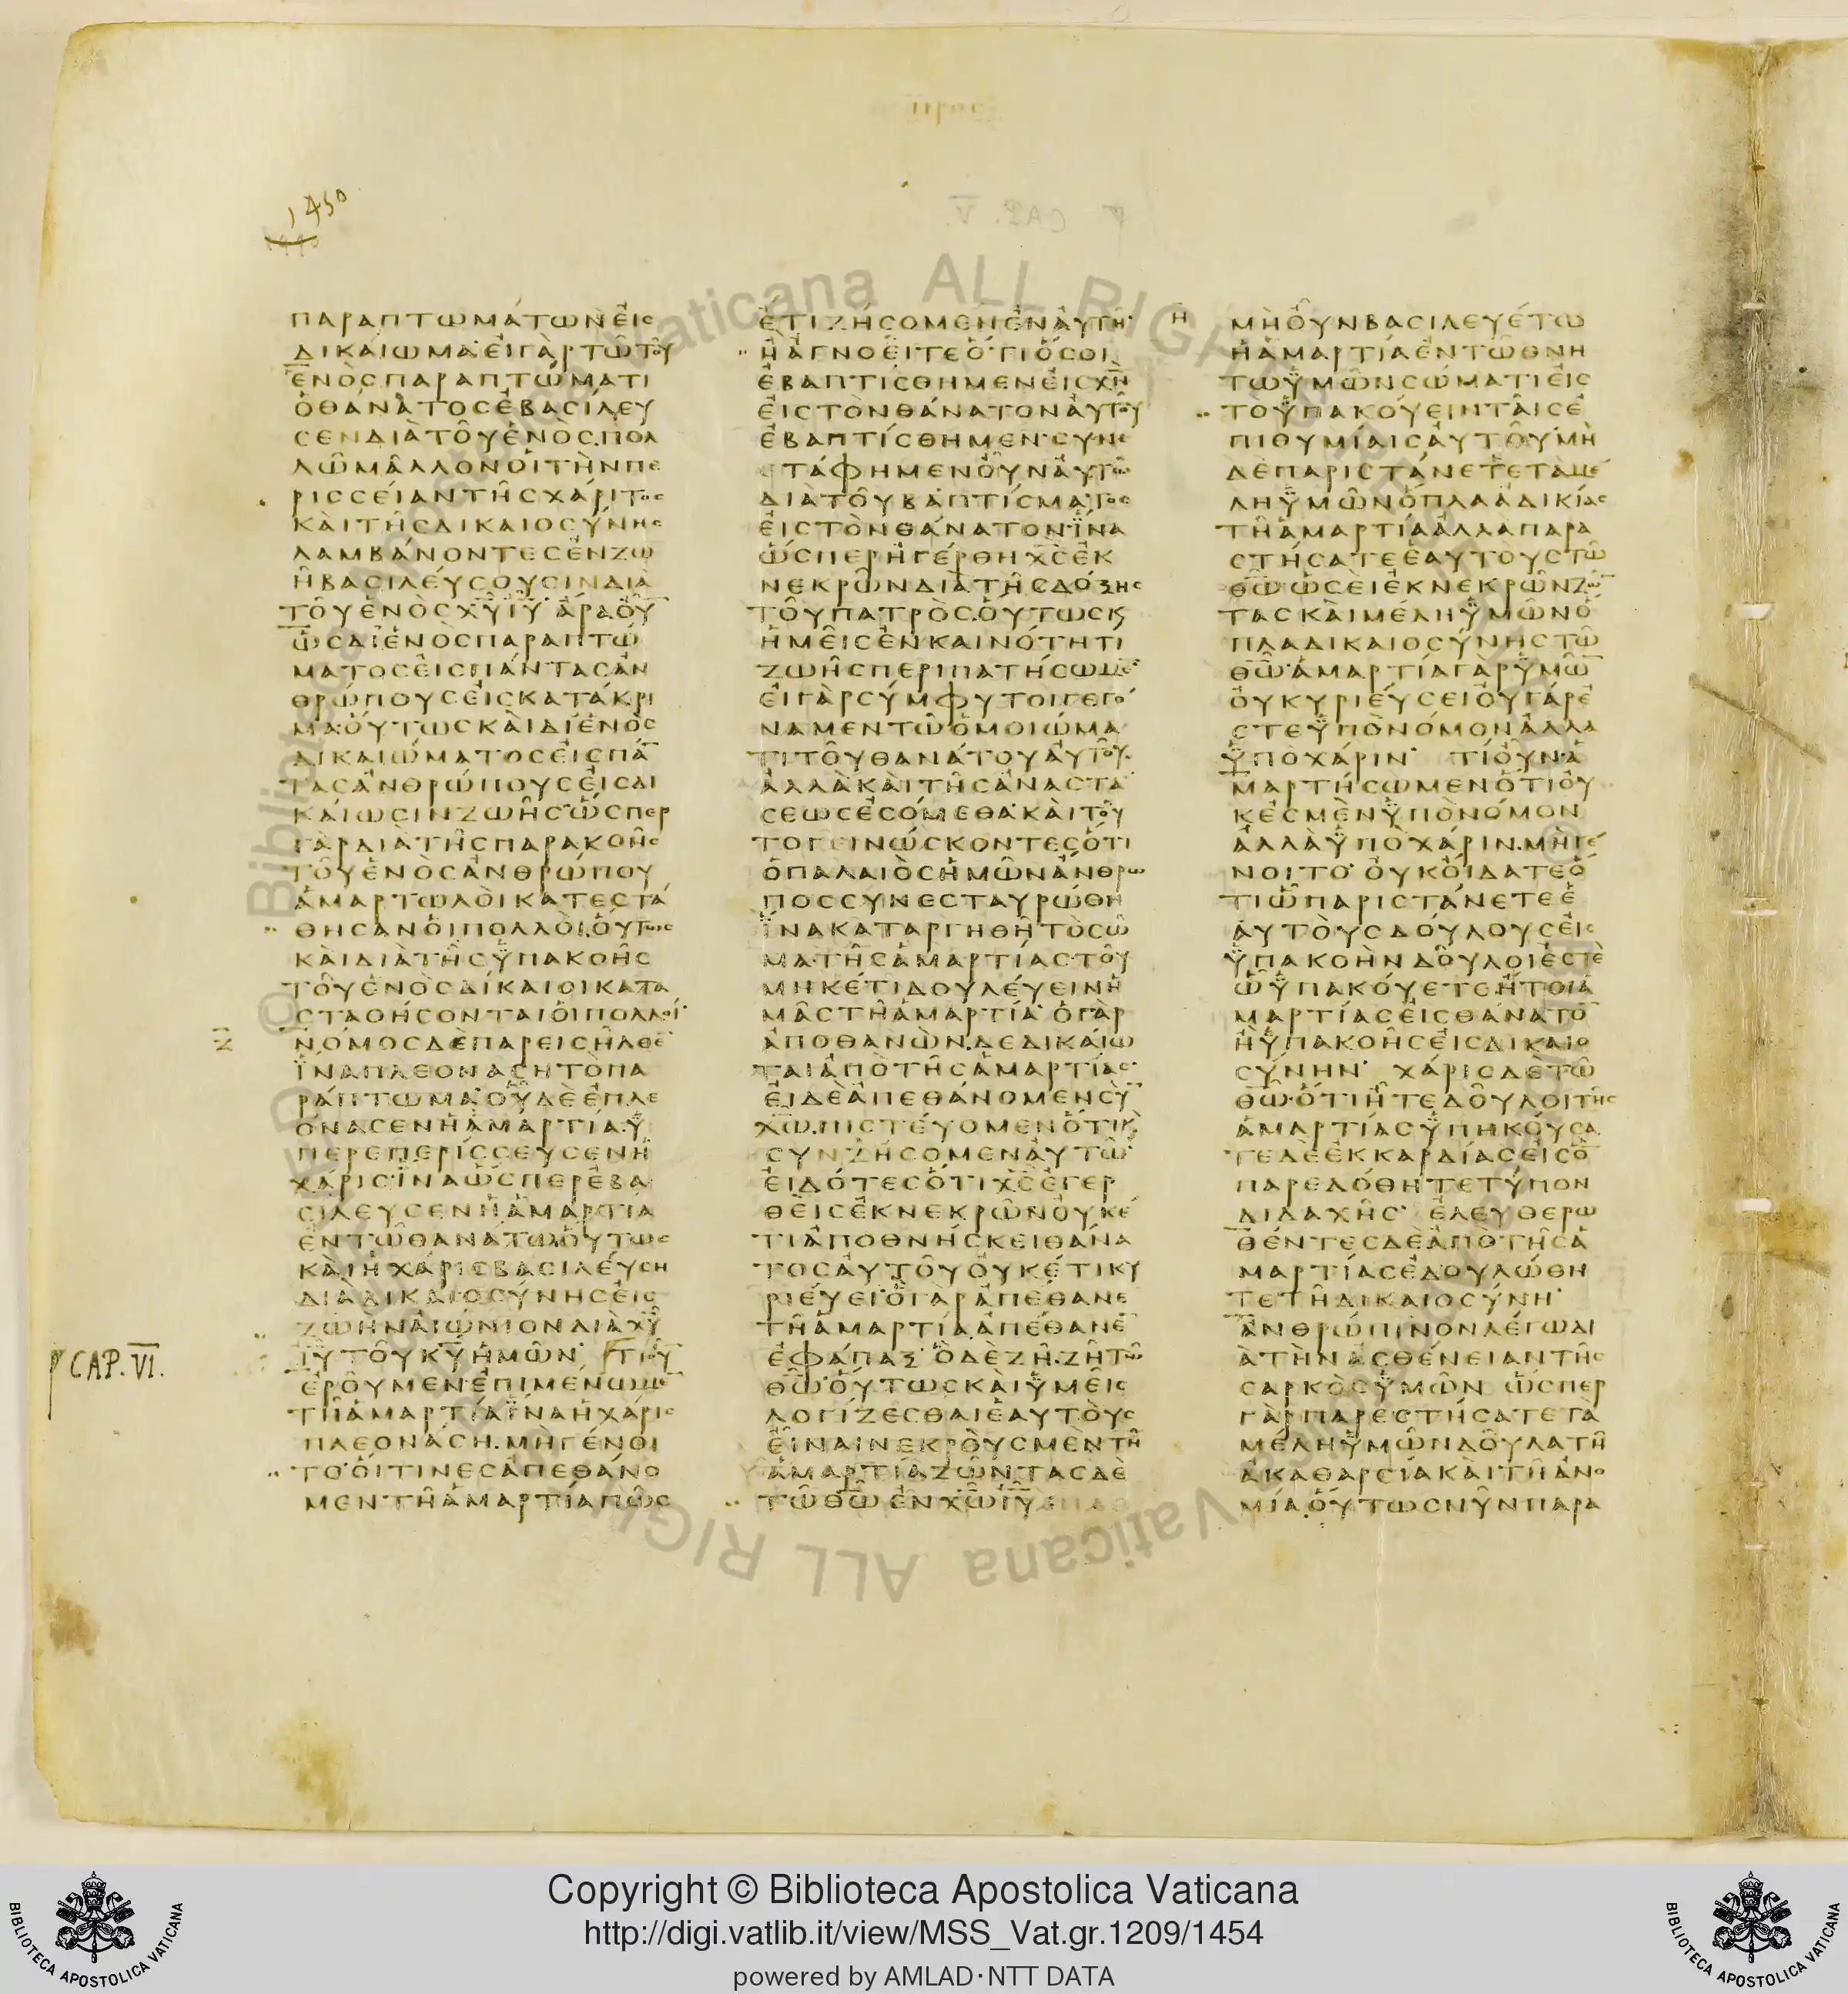 1450
ΠΑΡΑΠΤΩΜΑΤΩΝΕΙΣ
ΔΙΚΑΙΩΜΑ·ΕΙΓΑΡΤΩΤΟΥ
ΕΝΟΣΠΑΡΑΠΤΩΜΑΤΙ
ΟΘΑΝΑΤΟΣΕΒΑΣΙΛΕΥ
ΣΕΝΔΙΑΤΟΥΕΝΟΣ.ΠΟΛ
ΛΩΜΑΛΛΟΝΟΙΤΗΝΠΕ
ΡΙΣΣΕΙΑΝΤΗΣΧΑΡΙΤΟΣ
ΚΑΙΤΗΣΔΙΚΑΙΟΣΥΝΗΣ
ΛΑΜΒΑΝΟΝΤΕΣΕΝΖΩ
ΗΒΑΣΙΛΕΥΣΟΥΣΙΝΔΙΑ
ΤΟΥΕΝΟΣΧ̅Υ̅Ι̅Υ̅ ΑΡΑΟΥ̅
ΩΣΔΙΕΝΟΣΠΑΡΑΠΤΩ
ΜΑΤΟΣΕΙΣΠΑΝΤΑΣΑΝ
ΘΡΩΠΟΥΣΕΙΣΚΑΤΑΚΡΙ
ΜΑ·ΟΥΤΩΣΚΑΙΔΙΕΝΟΣ
ΔΙΚΑΙΩΜΑΤΟΣΕΙΣΠΑ̅
ΤΑΣΑΝΘΡΩΠΟΥΣΕΙΣΔΙ
ΚΑΙΩΣΙΝΖΩΗΣ·ΩΣΠΕΡ
ΓΑΡΔΙΑΤΗΣΠΑΡΑΚΟΗΣ
ΤΟΥΕΝΟΣΑΝΘΡΩΠΟΥ
ΑΜΑΡΤΩΛΟΙΚΑΤΕΣΤΑ
ΘΗΣΑΝΟΙΠΟΛΛΟΙ.ΟΥΤΩΣ
ΚΑΙΔΙΑΤΗΣΥΠΑΚΟΗΣ
ΤΟΥΕΝΟΣΔΙΚΑΙΟΙΚΑΤΑ
ΣΤΑΘΗΣΟΝΤΑΙΟΙΠΟΛΛΟΙ·
ΝΟΜΟΣΔΕΠΑΡΕΙΣΗΛΘΕ̅
ΙΝΑΠΛΕΟΝΑΣΗΤΟΠΑ
ΡΑΠΤΩΜΑ·ΟΥΔΕΕΠΛΕ
ΟΝΑΣΕΝΗΑΜΑΡΤΙΑ·Υ
ΠΕΡΕΠΕΡΙΣΣΕΥΣΕΝΗ
ΧΑΡΙΣ·ΙΝΑΩΣΠΕΡΕΒΑ
ΣΙΛΕΥΣΕΝΗΑΜΑΡΤΙΑ
ΕΝΤΩΘΑΝΑΤΩ·ΟΥΤΩΣ
ΚΑΙΗΧΑΡΙΣΒΑΣΙΛΕΥΣΗ
ΔΙΑΔΙΚΑΙΟΣΥΝΗΣΕΙΣ
ΖΩΗΝΑΙΩΝΙΟΝΔΙΑΧ̅Υ̅
Ι̅Υ̅ΤΟΥΚ̅Υ̅ΗΜΩΝ· ΤΙΟΥ̅
CAP. VI.
ΕΡΟΥΜΕΝ·ΕΠΙΜΕΝΩΜΕ̅
ΤΗΑΜΑΡΤΙΑΙΝΑΗΧΑΡΙΣ
ΠΛΕΟΝΑΣΗ.ΜΗΓΕΝΟΙ
ΤΟ·ΟΙΤΙΝΕΣΑΠΕΘΑΝΟ
ΜΕΝΤΗΑΜΑΡΤΙΑΠΩΣ
ΕΤΙΖΗΣΟΜΕΝΕΝΑΥΤΗ·
ΗΑΓΝΟΕΙΤΕΟΤΙΟΣΟΙ
ΕΒΑΠΤΙΣΘΗΜΕΝΕΙΣΧ̅Ν̅
ΕΙΣΤΟΝΘΑΝΑΤΟΝΑΥΤΟΥ
ΕΒΑΠΤΙΣΘΗΜΕΝ·ΣΥΝΕ
ΣΤΑΦΗΜΕΝΟΥΝΑΥΤΩ
ΔΙΑΤΟΥΒΑΠΤΙΣΜΑΤΟΣ
ΕΙΣΤΟΝΘΑΝΑΤΟΝΙΝΑ
ΩΣΠΕΡΗΓΕΡΘΗΧ̅Σ̅ΕΚ
ΝΕΚΡΩΝΔΙΑΤΗΣΔΟΞΗΣ
ΤΟΥΠΑΤΡΟΣ.ΟΥΤΩΣΚ
ΗΜΕΙΣΕΝΚΑΙΝΟΤΗΤΙ
ΖΩΗΣΠΕΡΙΠΑΤΗΣΩΜΕ̅
ΕΙΓΑΡΣΥΜΦΥΤΟΙΓΕΓΟ
ΝΑΜΕΝΤΩΟΜΟΙΩΜΑ
ΤΙΤΟΥΘΑΝΑΤΟΥΑΥΤΟΥ·
ΑΛΛΑΚΑΙΤΗΣΑΝΑΣΤΑ
ΣΕΩΣΕΣΟΜΕΘΑ·ΚΑΙΤΟΥ
ΤΟΓΕΙΝΩΣΚΟΝΤΕΣΟΤΙ
ΟΠΑΛΑΙΟΣΗΜΩΝΑΝΘΡΩ
ΠΟΣΣΥΝΕΣΤΑΥΡΩΘΗ
ΙΝΑΚΑΤΑΡΓΗΘΗΤΟΣΩ
ΜΑΤΗΣΑΜΑΡΤΙΑΣΤΟΥ
ΜΗΚΕΤΙΔΟΥΛΕΥΕΙΝΗ
ΜΑΣΤΗΑΜΑΡΤΙΑ· ΟΓΑΡ
ΑΠΟΘΑΝΩΝ.ΔΕΔΙΚΑΙΩ
ΤΑΙΑΠΟΤΗΣΑΜΑΡΤΙΑΣ·
ΕΙΔΕΑΠΕΘΑΝΟΜΕΝΣΥ̅
Χ̅Ω̅.ΠΙΣΤΕΥΟΜΕΝΟΤΙΚ
ΣΥΝΖΗΣΟΜΕΝΑΥΤΩ·
ΕΙΔΟΤΕΣΟΤΙΧ̅Σ̅ΕΓΕΡ
ΘΕΙΣΕΚΝΕΚΡΩΝΟΥΚΕ
ΤΙΑΠΟΘΝΗΣΚΕΙΘΑΝΑ
ΤΟΣΑΥΤΟΥΟΥΚΕΤΙΚΥ
ΡΙΕΥΕΙ·ΟΓΑΡΑΠΕΘΑΝΕ
ΤΗΑΜΑΡΤΙΑ.ΑΠΕΘΑΝΕ̅
ΕΦΑΠΑΞ·ΟΔΕΖΗ.ΖΗΤΩ
Θ̅Ω̅·ΟΥΤΩΣΚΑΙΥΜΕΙΣ
ΛΟΓΙΖΕΣΘΑΙΕΑΥΤΟΥΣ
ΕΙΝΑΙΝΕΚΡΟΥΣΜΕΝΤΗ
ΑΜΑΡΤΙΑΖΩΝΤΑΣΔΕ
ΤΩΘ̅Ω̅ΕΝΧ̅Ω̅Ι̅Υ̅
Η
ΜΗΟΥΝΒΑΣΙΛΕΥΕΤΩ
ΗΑΜΑΡΤΙΑΕΝΤΩΘΝΗ
ΤΩΥΜΩΝΣΩΜΑΤΙΕΙΣ
ΤΟΥΠΑΚΟΥΕΙΝΤΑΙΣΕ
ΠΙΘΥΜΙΑΙΣΑΥΤΟΥ·ΜΗ
ΔΕΠΑΡΙΣΤΑΝΕΤΕΤΑΜΕ
ΛΗΥΜΩΝΟΠΛΑΑΔΙΚΙΑΣ
ΤΗΑΜΑΡΤΙΑΑΛΛΑΠΑΡΑ
ΣΤΗΣΑΤΕΕΑΥΤΟΥΣΤΩ
Θ̅Ω̅ΩΣΕΙΕΚΝΕΚΡΩΝΖΩ̅
ΤΑΣΚΑΙΜΕΛΗΥΜΩΝΟ
ΠΛΑΔΙΚΑΙΟΣΥΝΗΣΤΩ
Θ̅Ω̅·ΑΜΑΡΤΙΑΓΑΡΥΜΩ̅
ΟΥΚΥΡΙΕΥΣΕΙΟΥΓΑΡΕ
ΣΤΕΥΠΟΝΟΜΟΝΑΛΛΑ
ΥΠΟΧΑΡΙΝ· ΤΙΟΥΝ·Α
ΜΑΡΤΗΣΩΜΕΝΟΤΙΟΥ
ΚΕΣΜΕΝΥΠΟΝΟΜΟΝ
ΑΛΛΑΥΠΟΧΑΡΙΝ.ΜΗΓΕ
ΝΟΙΤΟ· ΟΥΚΟΙΔΑΤΕΟ
ΤΙΩΠΑΡΙΣΤΑΝΕΤΕΕ
ΑΥΤΟΥΣΔΟΥΛΟΥΣΕΙΣ
ΥΠΑΚΟΗΝΔΟΥΛΟΙΕΣΤΕ
ΩΥΠΑΚΟΥΕΤΕ.ΗΤΟΙΑ
ΜΑΡΤΙΑΣΕΙΣΘΑΝΑΤΟ̅
ΗΥΠΑΚΟΗΣΕΙΣΔΙΚΑΙΟ
ΣΥΝΗΝ· ΧΑΡΙΣΔΕΤΩ
Θ̅Ω̅·ΟΤΙΗΤΕΔΟΥΛΟΙΤΗΣ
ΑΜΑΡΤΙΑΣΥΠΗΚΟΥΣΑ
ΤΕΔΕΕΚΚΑΡΔΙΑΣΕΙΣΟ̅
ΠΑΡΕΔΟΘΗΤΕΤΥΠΟΝ
ΔΙΔΑΧΗΣ· ΕΛΕΥΘΕΡΩ
ΘΕΝΤΕΣΔΕΑΠΟΤΗΣΑ
ΜΑΡΤΙΑΣΕΔΟΥΛΩΘΗ
ΤΕΤΗΔΙΚΑΙΟΣΥΝΗ·
ΑΝΘΡΩΠΙΝΟΝΛΕΓΩΔΙ
ΑΤΗΝΑΣΘΕΝΕΙΑΝΤΗΣ
ΣΑΡΚΟΣΥΜΩΝ ΩΣΠΕΡ
ΓΑΡΠΑΡΕΣΤΗΣΑΤΕΤΑ
ΜΕΛΗΥΜΩΝΔΟΥΛΑΤΗ
ΑΚΑΘΑΡΣΙΑΚΑΙΤΗΑΝΟ
ΜΙΑ.ΟΥΤΩΣΝΥΝΠΑΡΑ
Copyright © Biblioteca Apostolica Vaticana
http://digi.vatlib.it/view/MSS_Vat.gr.1209/1454
powered by AMLAD·NTT DATA
BIBLIOTECA APOSTOLICA VATICANA
BIBLIOTECA APOSTOLICA VATICANA